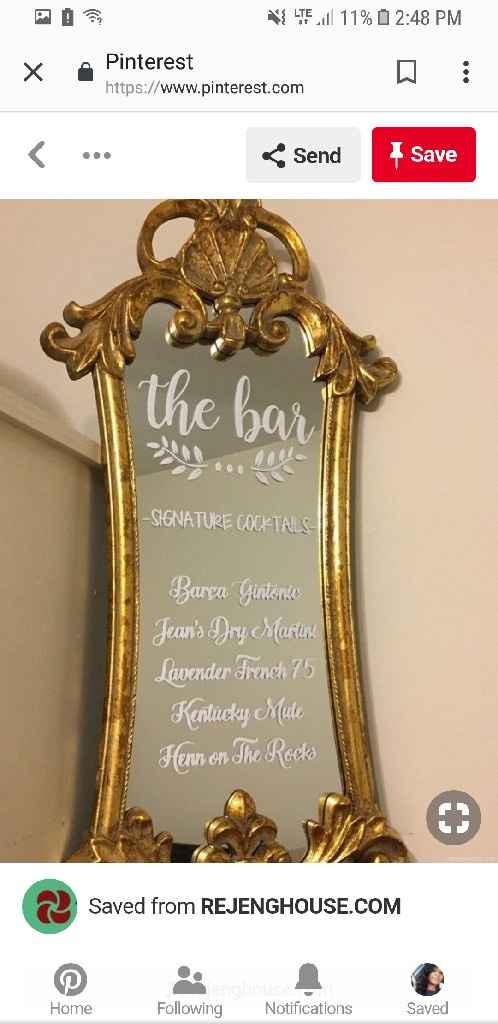 LTE 11% 2:48 PM
Pinterest
https://www.pinterest.com
Send
Save
the bar
-SIGNATURE COCKTAILS-
Barça Gintonic
Jean's Dry Martini
Lavender French 75
Kentucky Mule
Henn on The Rocks
Saved from REJENGHOUSE.COM
Home
Following
Notifications
Saved